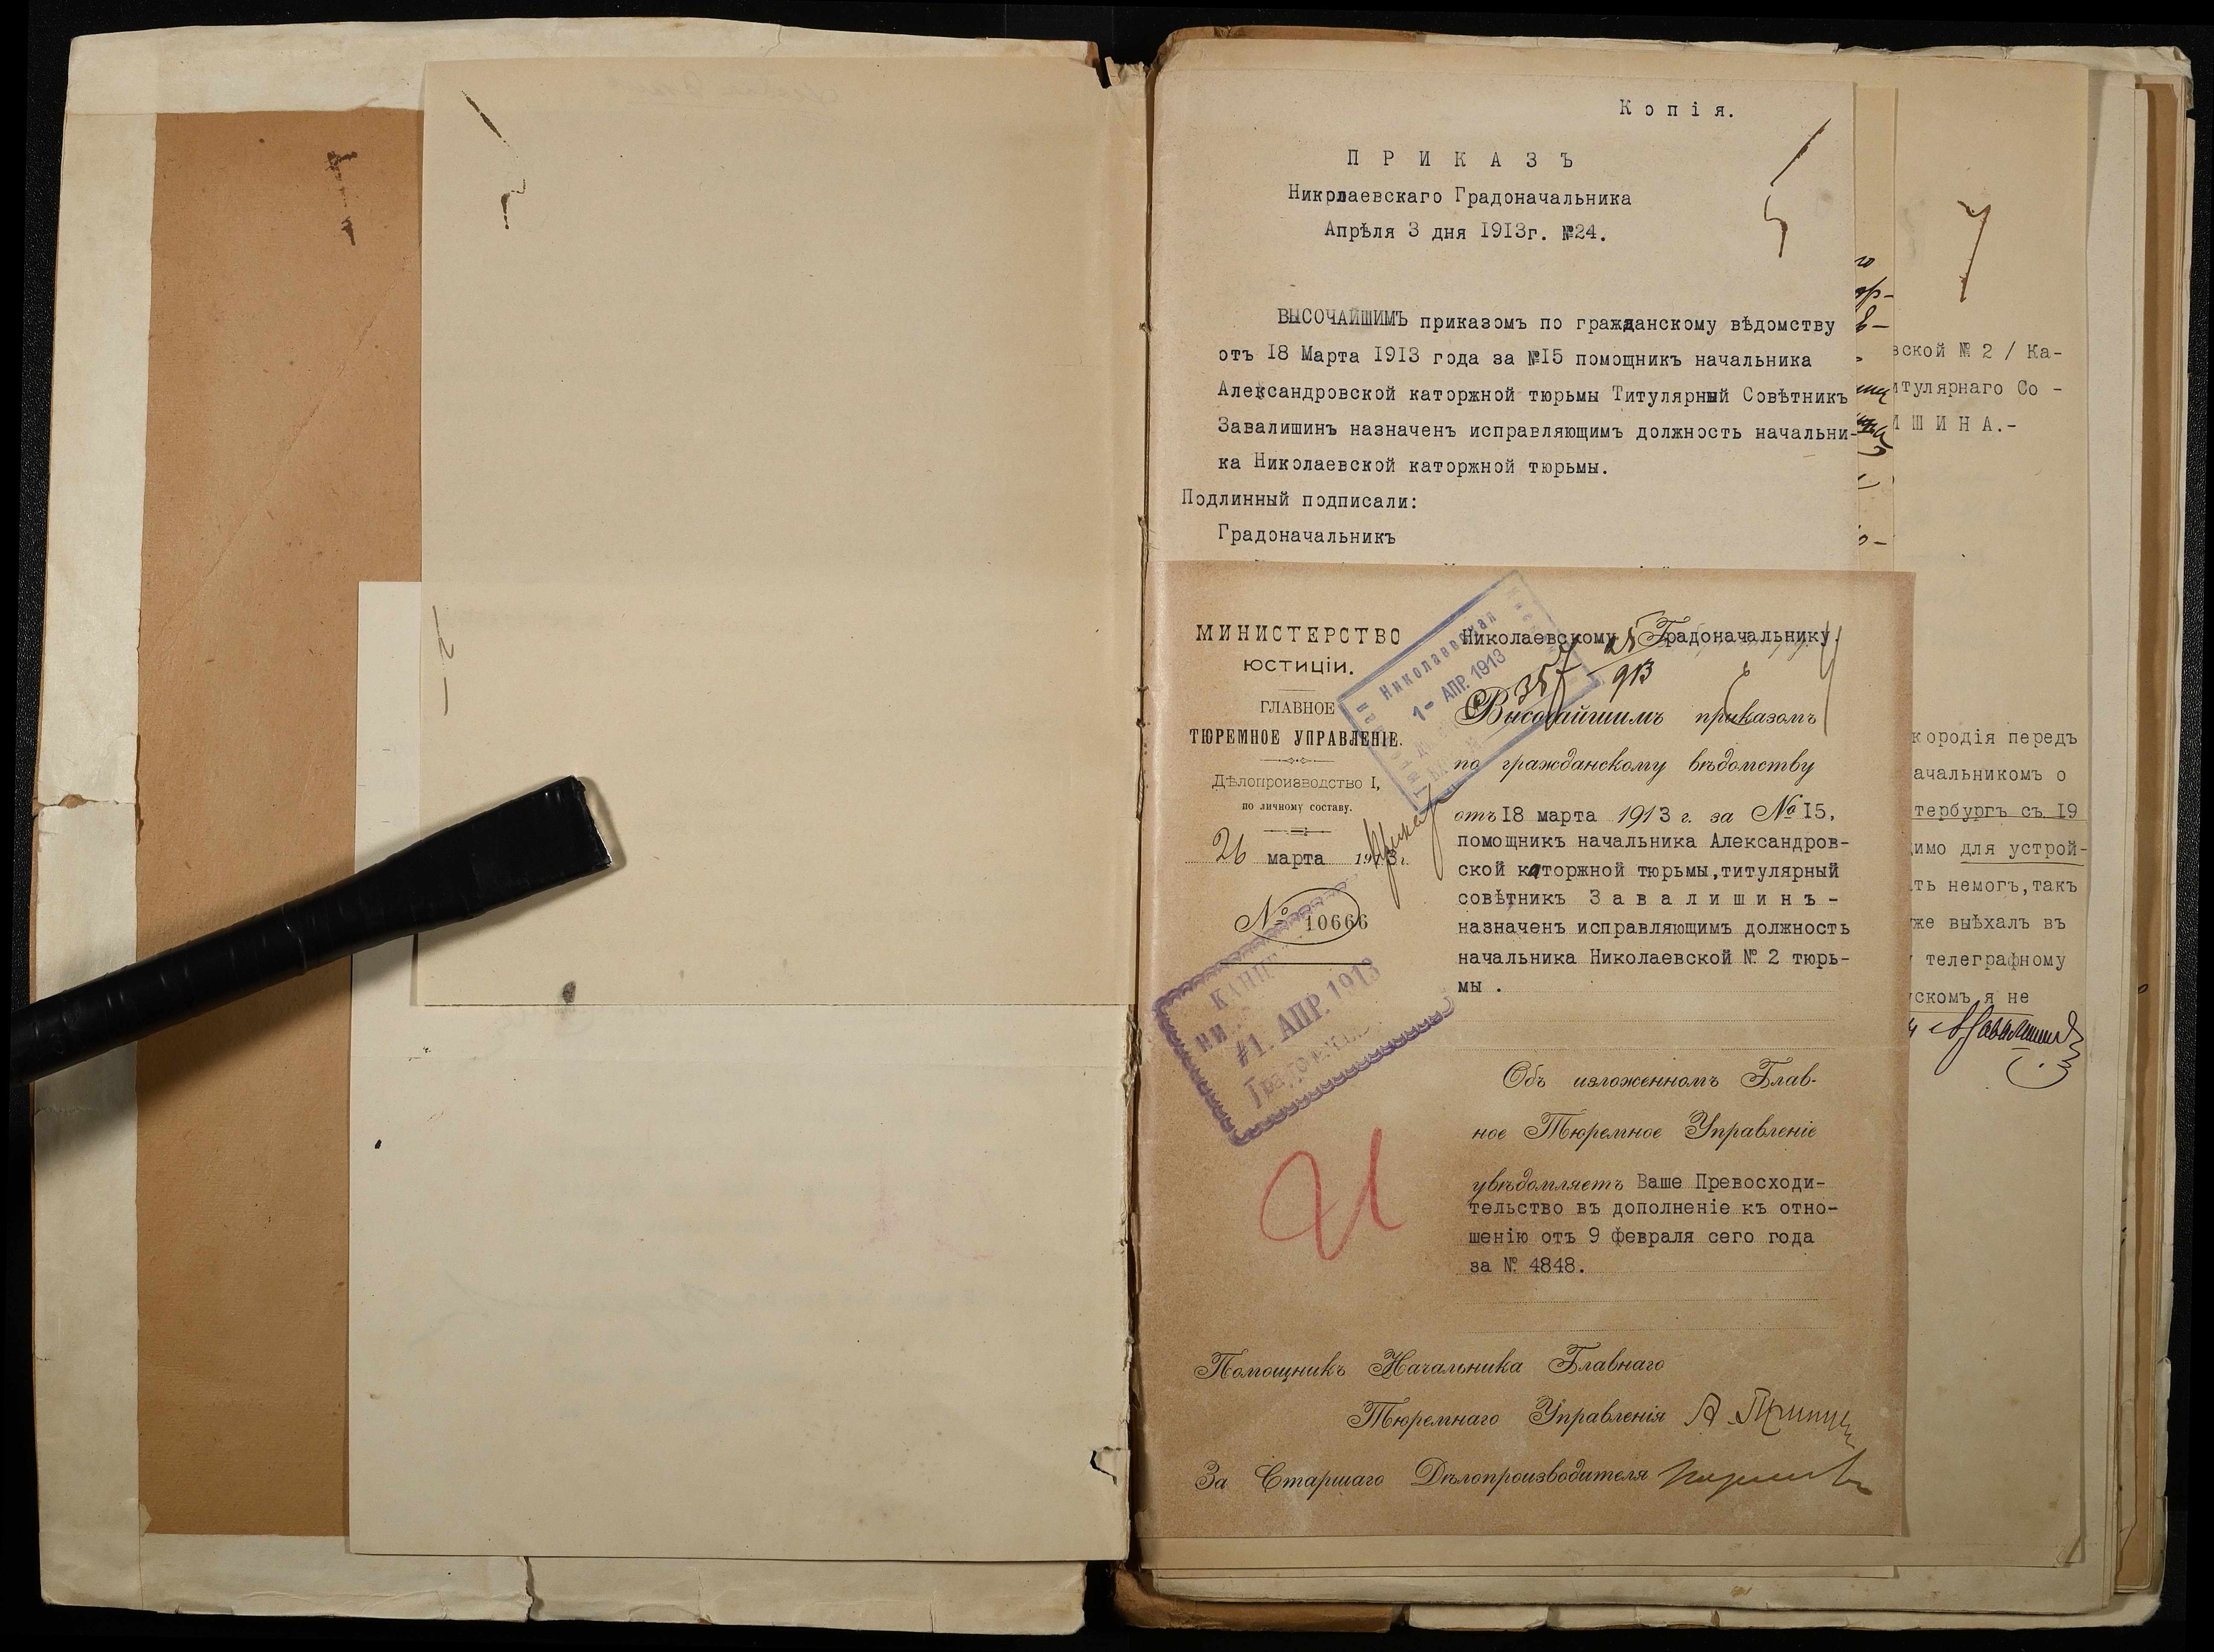 Копія.
ПРИКАЗЪ
Николаевскаго Градоначальника
Апрѣля 3 дня 1913г. №24.
ВЫСОЧАЙШИМЪ приказомъ по гражданскому вѣдомству
отъ 18 Марта 1913 года за №15 помощникъ начальника
Александровской каторжной тюрьмы Титулярный Совѣтникъ
Завалишинъ назначенъ исправляющимъ должность начальни-
ка Николаевской каторжной тюрьмы.
Подлинный подписали:
Градоначальникъ
МИНИСТЕРСТВО
ЮСТИЦІИ.
ГЛАВНОЕ
ТЮРЕМНОЕ УПРАВЛЕНІЕ.
Дѣлопроизводство I,
по личному составу.
26 марта 1913г.
№ 10666
Николаевская
1- АПР. 1913
#1. АПР. 1913
Николаевскому Градоначальнику.
913
Высочайшимъ приказомъ
по гражданскому вѣдомству
отъ 18 марта 1913 г. за № 15,
помощникъ начальника Александров-
ской каторжной тюрьмы, титулярный
совѣтникъ Завалишинъ -
назначенъ исправляющимъ должность
начальника Николаевской № 2 тюрь-
мы.
Объ изложенномъ Глав-
ное Тюремное Управленіе
увѣдомляетъ Ваше Превосходи-
тельство въ дополненіе къ отно-
шенію отъ 9 февраля сего года
за № 4848.
Помощникъ Начальника Главнаго
Тюремнаго Управленія
За Старшаго Дѣлопроизводителя
вской № 2 / Ка-
итулярнаго Со -
ИШИНА.-
кородія передъ
ачальникомъ о
тербургъ съ 19
димо для устрой-
ть немогъ, такъ
же выѣхалъ въ
телеграфному
скомъ я не